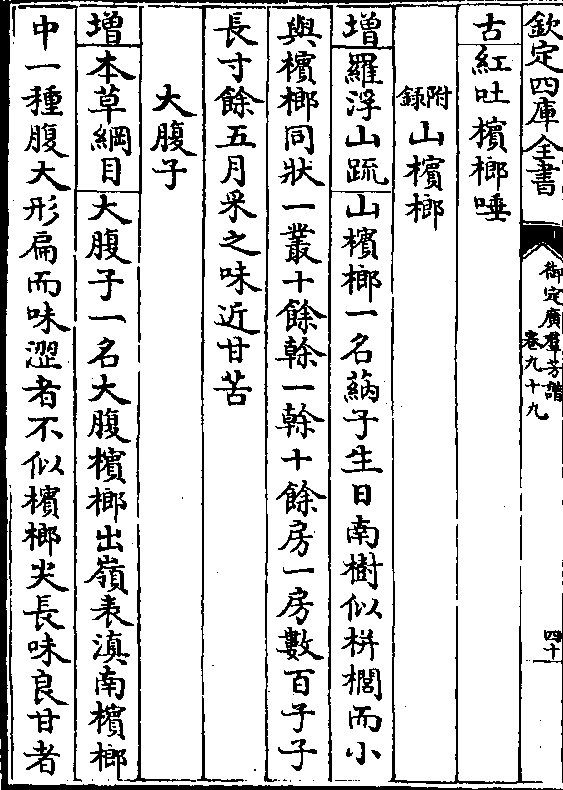 欽定四庫全書
御定廣羣芳譜
卷九十九
四十
古紅吐檳榔唾
附錄
山檳榔
增羅浮山疏山檳榔一名蒳子生日南樹似栟櫚而小
與檳榔同狀一叢十餘榦一榦十餘房一房數百子子
長寸餘五月采之味近甘苦
大腹子
增本草綱目大腹子一名大腹檳榔出嶺表滇南檳榔
中一種腹大形扁而味澀者不似檳榔尖長味良甘者